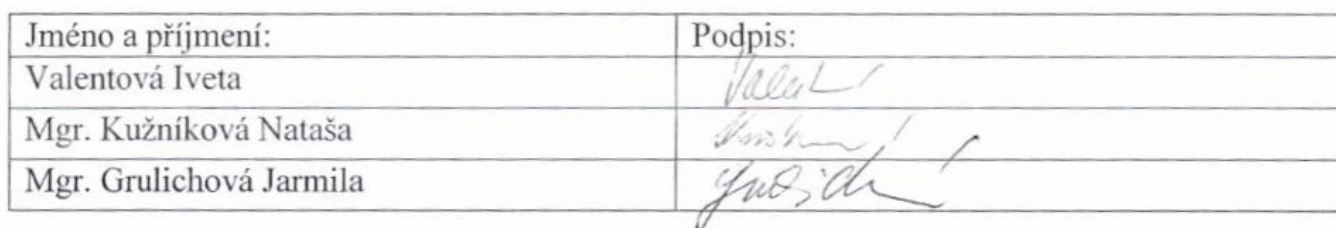 Jméno a příjmení: Podpis:
Valentová Iveta
Mgr. Kužníková Nataša
Mgr. Grulichová Jarmila